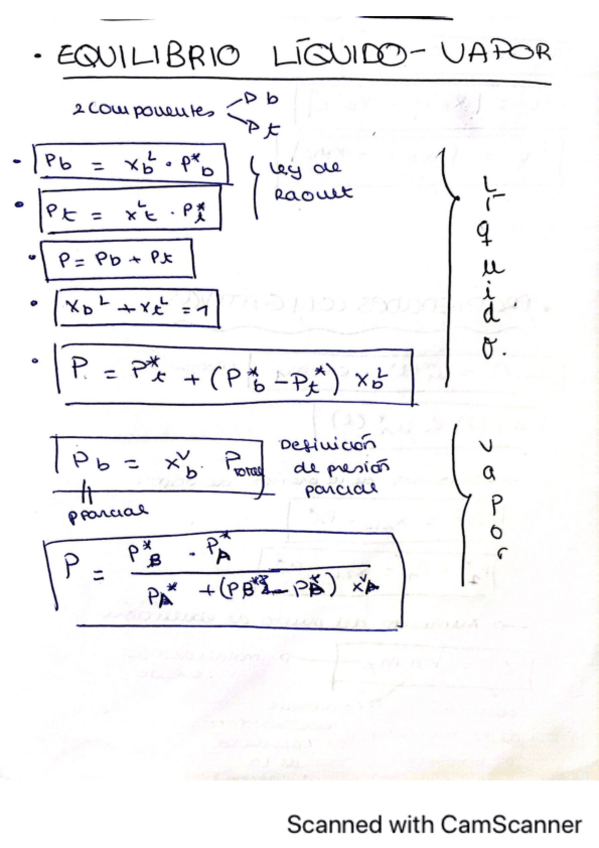 • EQUILIBRIO LÍQUIDO-VAPOR
2 componentes
b
t
• Pb = xb^L · P*b
ley de
Raoult
• Pt = xt^L · Pt*
• P = Pb + Pt
• xb^L + xt^L = 1
• P = P*t + (P*b - Pt*) xb^L
Líquido.
Pb = xb^v · Ptotal
Definición
de presión
parcial
Pparcial
vapor
P = P*B · P*A / PA* + (PB* - P*) x^vA
Scanned with CamScanner